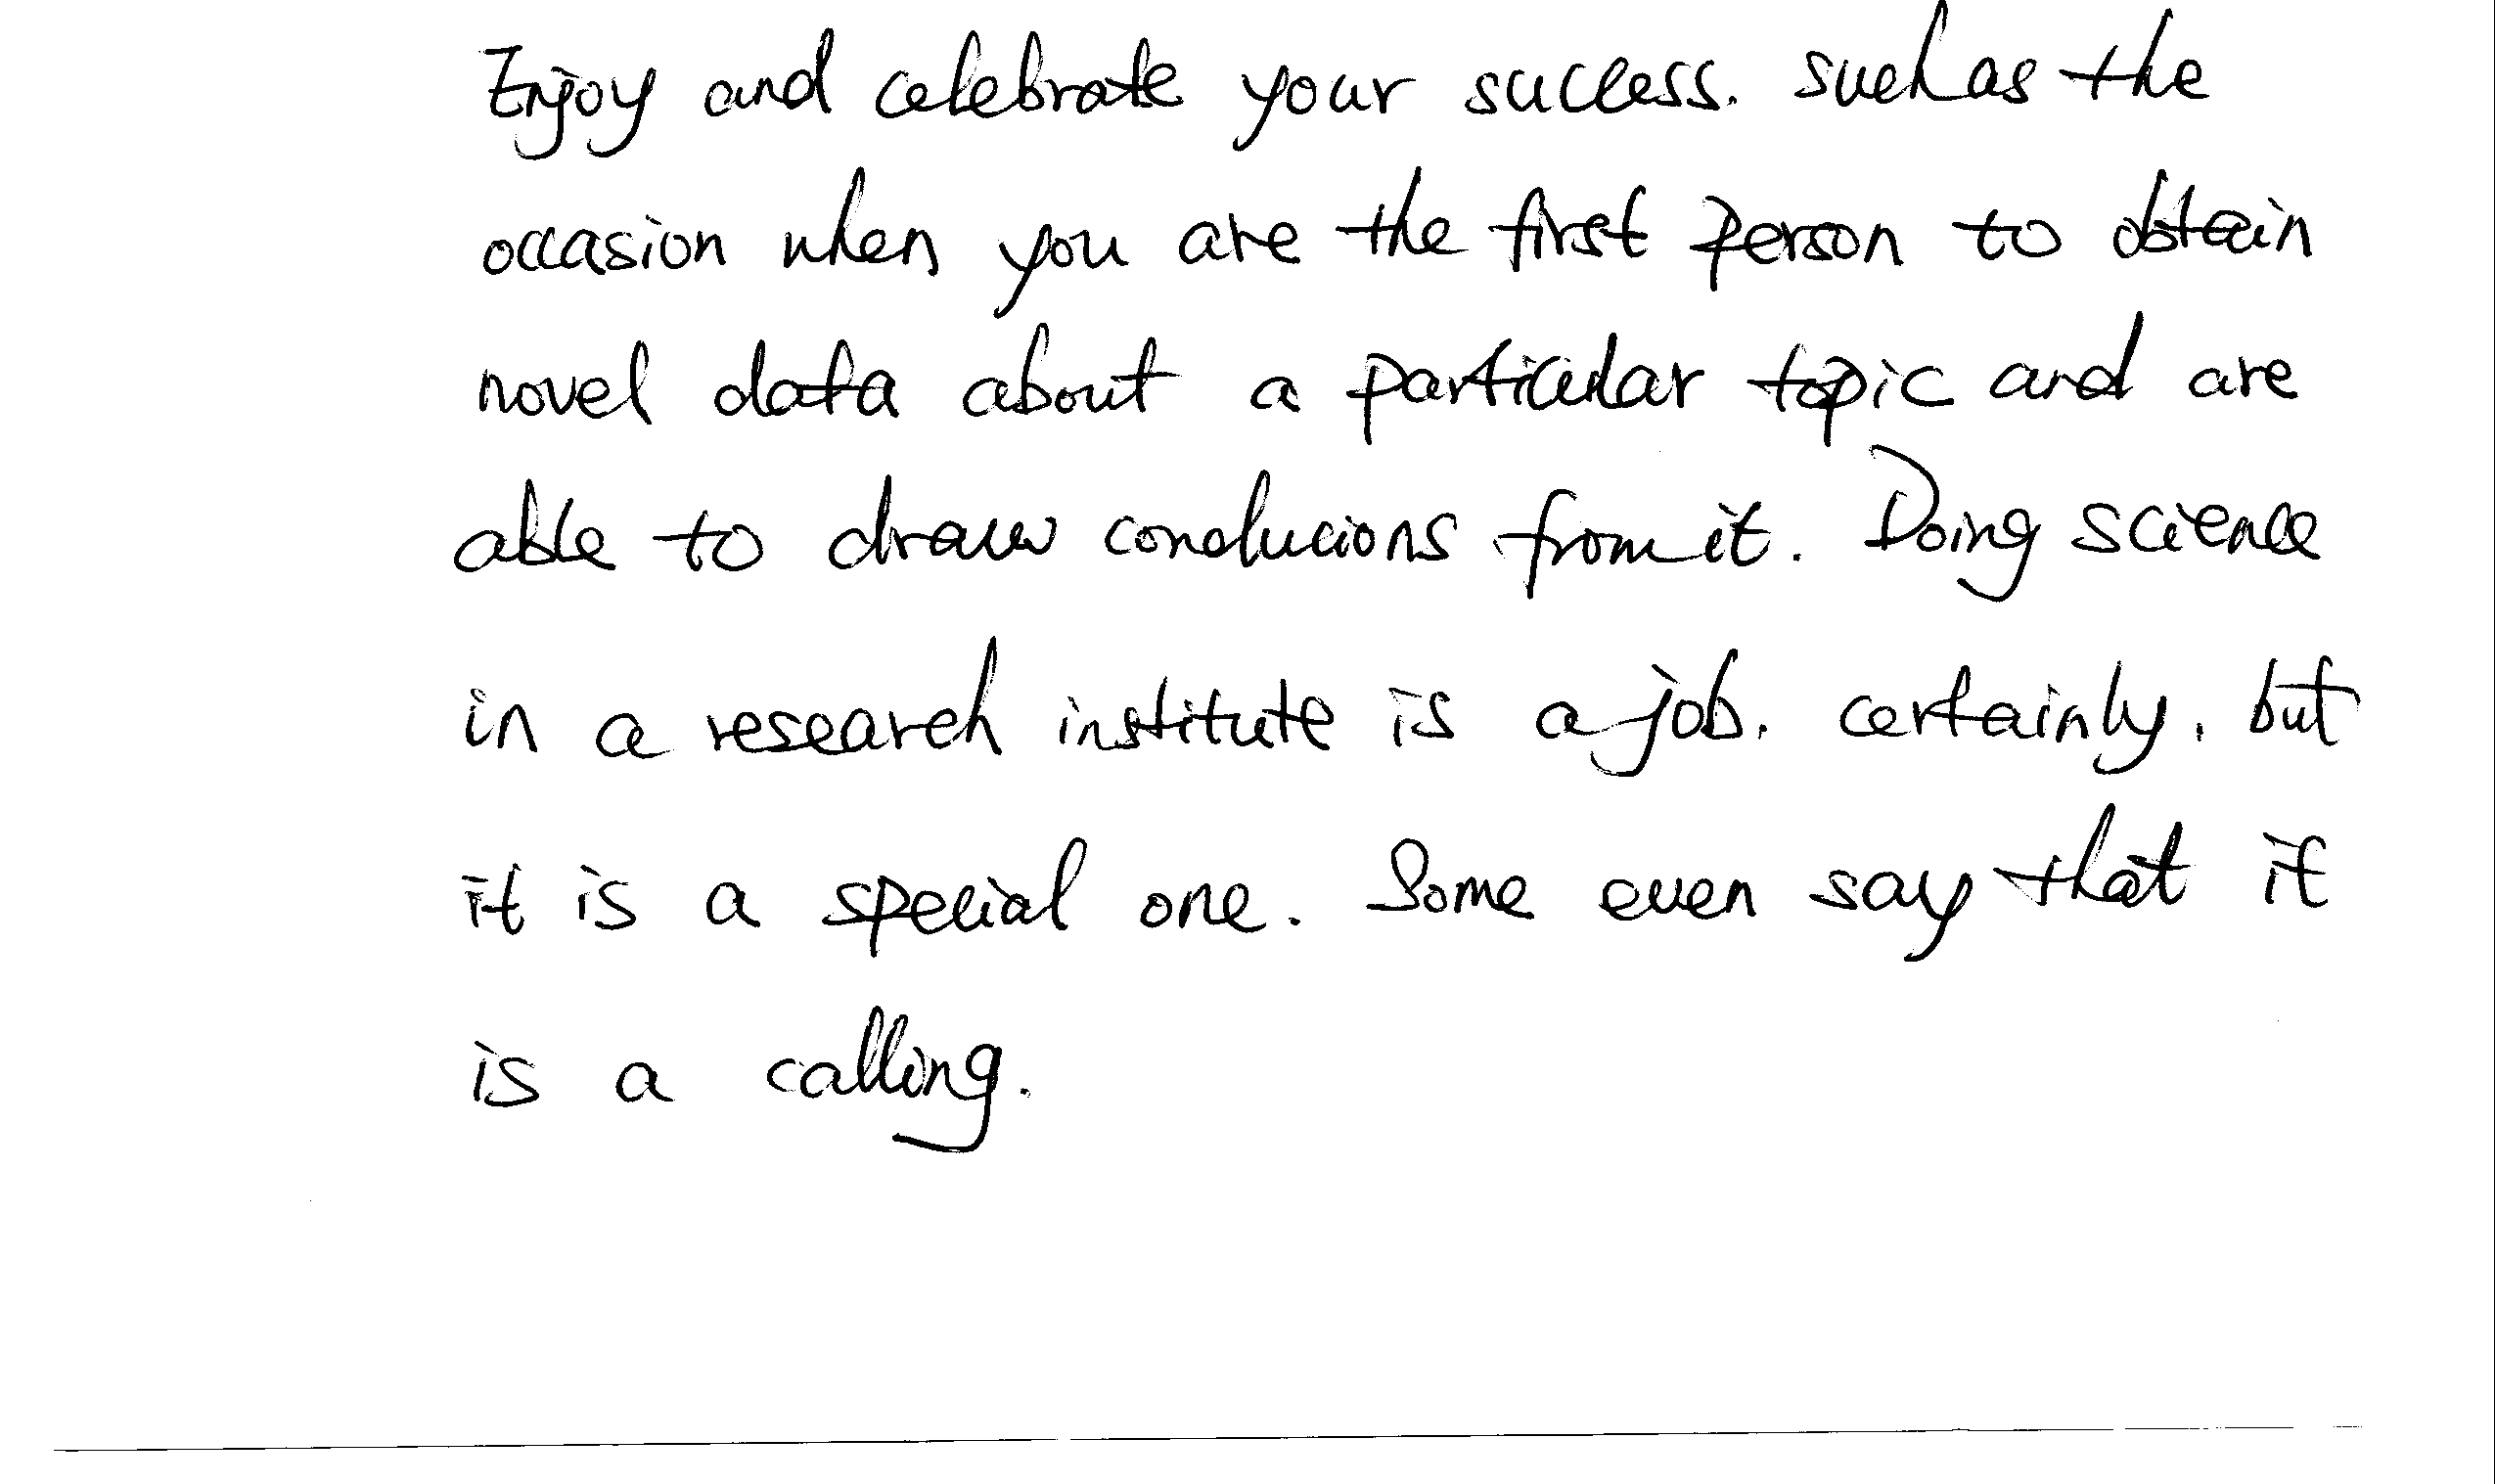 Enjoy and celebrate your success. such as the
occasion when you are the first person to obtain
novel data about a particular topic and are
able to draw conclucions from it. Doing science
in a research institute is a job. certainly, but
it is a special one. Some even say that it
is a calling.